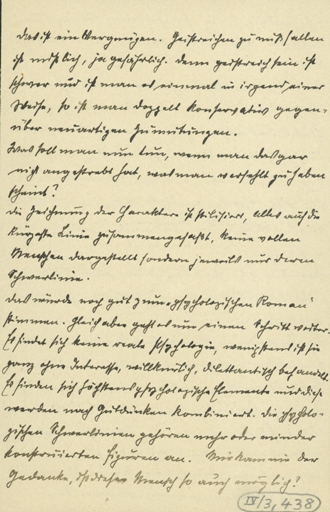 das ist ein Vergnügen. Geistreichen zu mißfallen
ist mißlich, ja gefährlich. denn geistreich sein ist
schwer und ist man es einmal in irgend einer
Weise, so ist man doppelt konservativ gegen-
über neuartigen Zumutungen.
Was soll man nun tun, wenn man das gar
nicht angestrebt hat, was man verfehlt zu haben
scheint?
die Zeichnung der Charaktere ist stilisiert, alles auf die
kürzeste Linie zusammengefaßt, keine vollen
Menschen dargestellt sondern jeweils nur deren
Schwerlinie.
das würde noch gut zum „psychologischen Roman"
stimmen. Gleich aber geht es nun einen Schritt weiter.
Es findet sich keine reale Psychologie, wenigstens ist sie
ganz ohne Interesse, willkürlich, dilettantisch behandelt.
Es finden sich höchstens psychologische Elemente und diese
werden nach Gutdünken kombiniert. die psycholo-
gischen Schwerlinien gehören mehr oder minder
konstruierten Figuren an. Mir kam nie der
Gedanke, ist dieser Mensch so auch möglich?
IV/3, 438